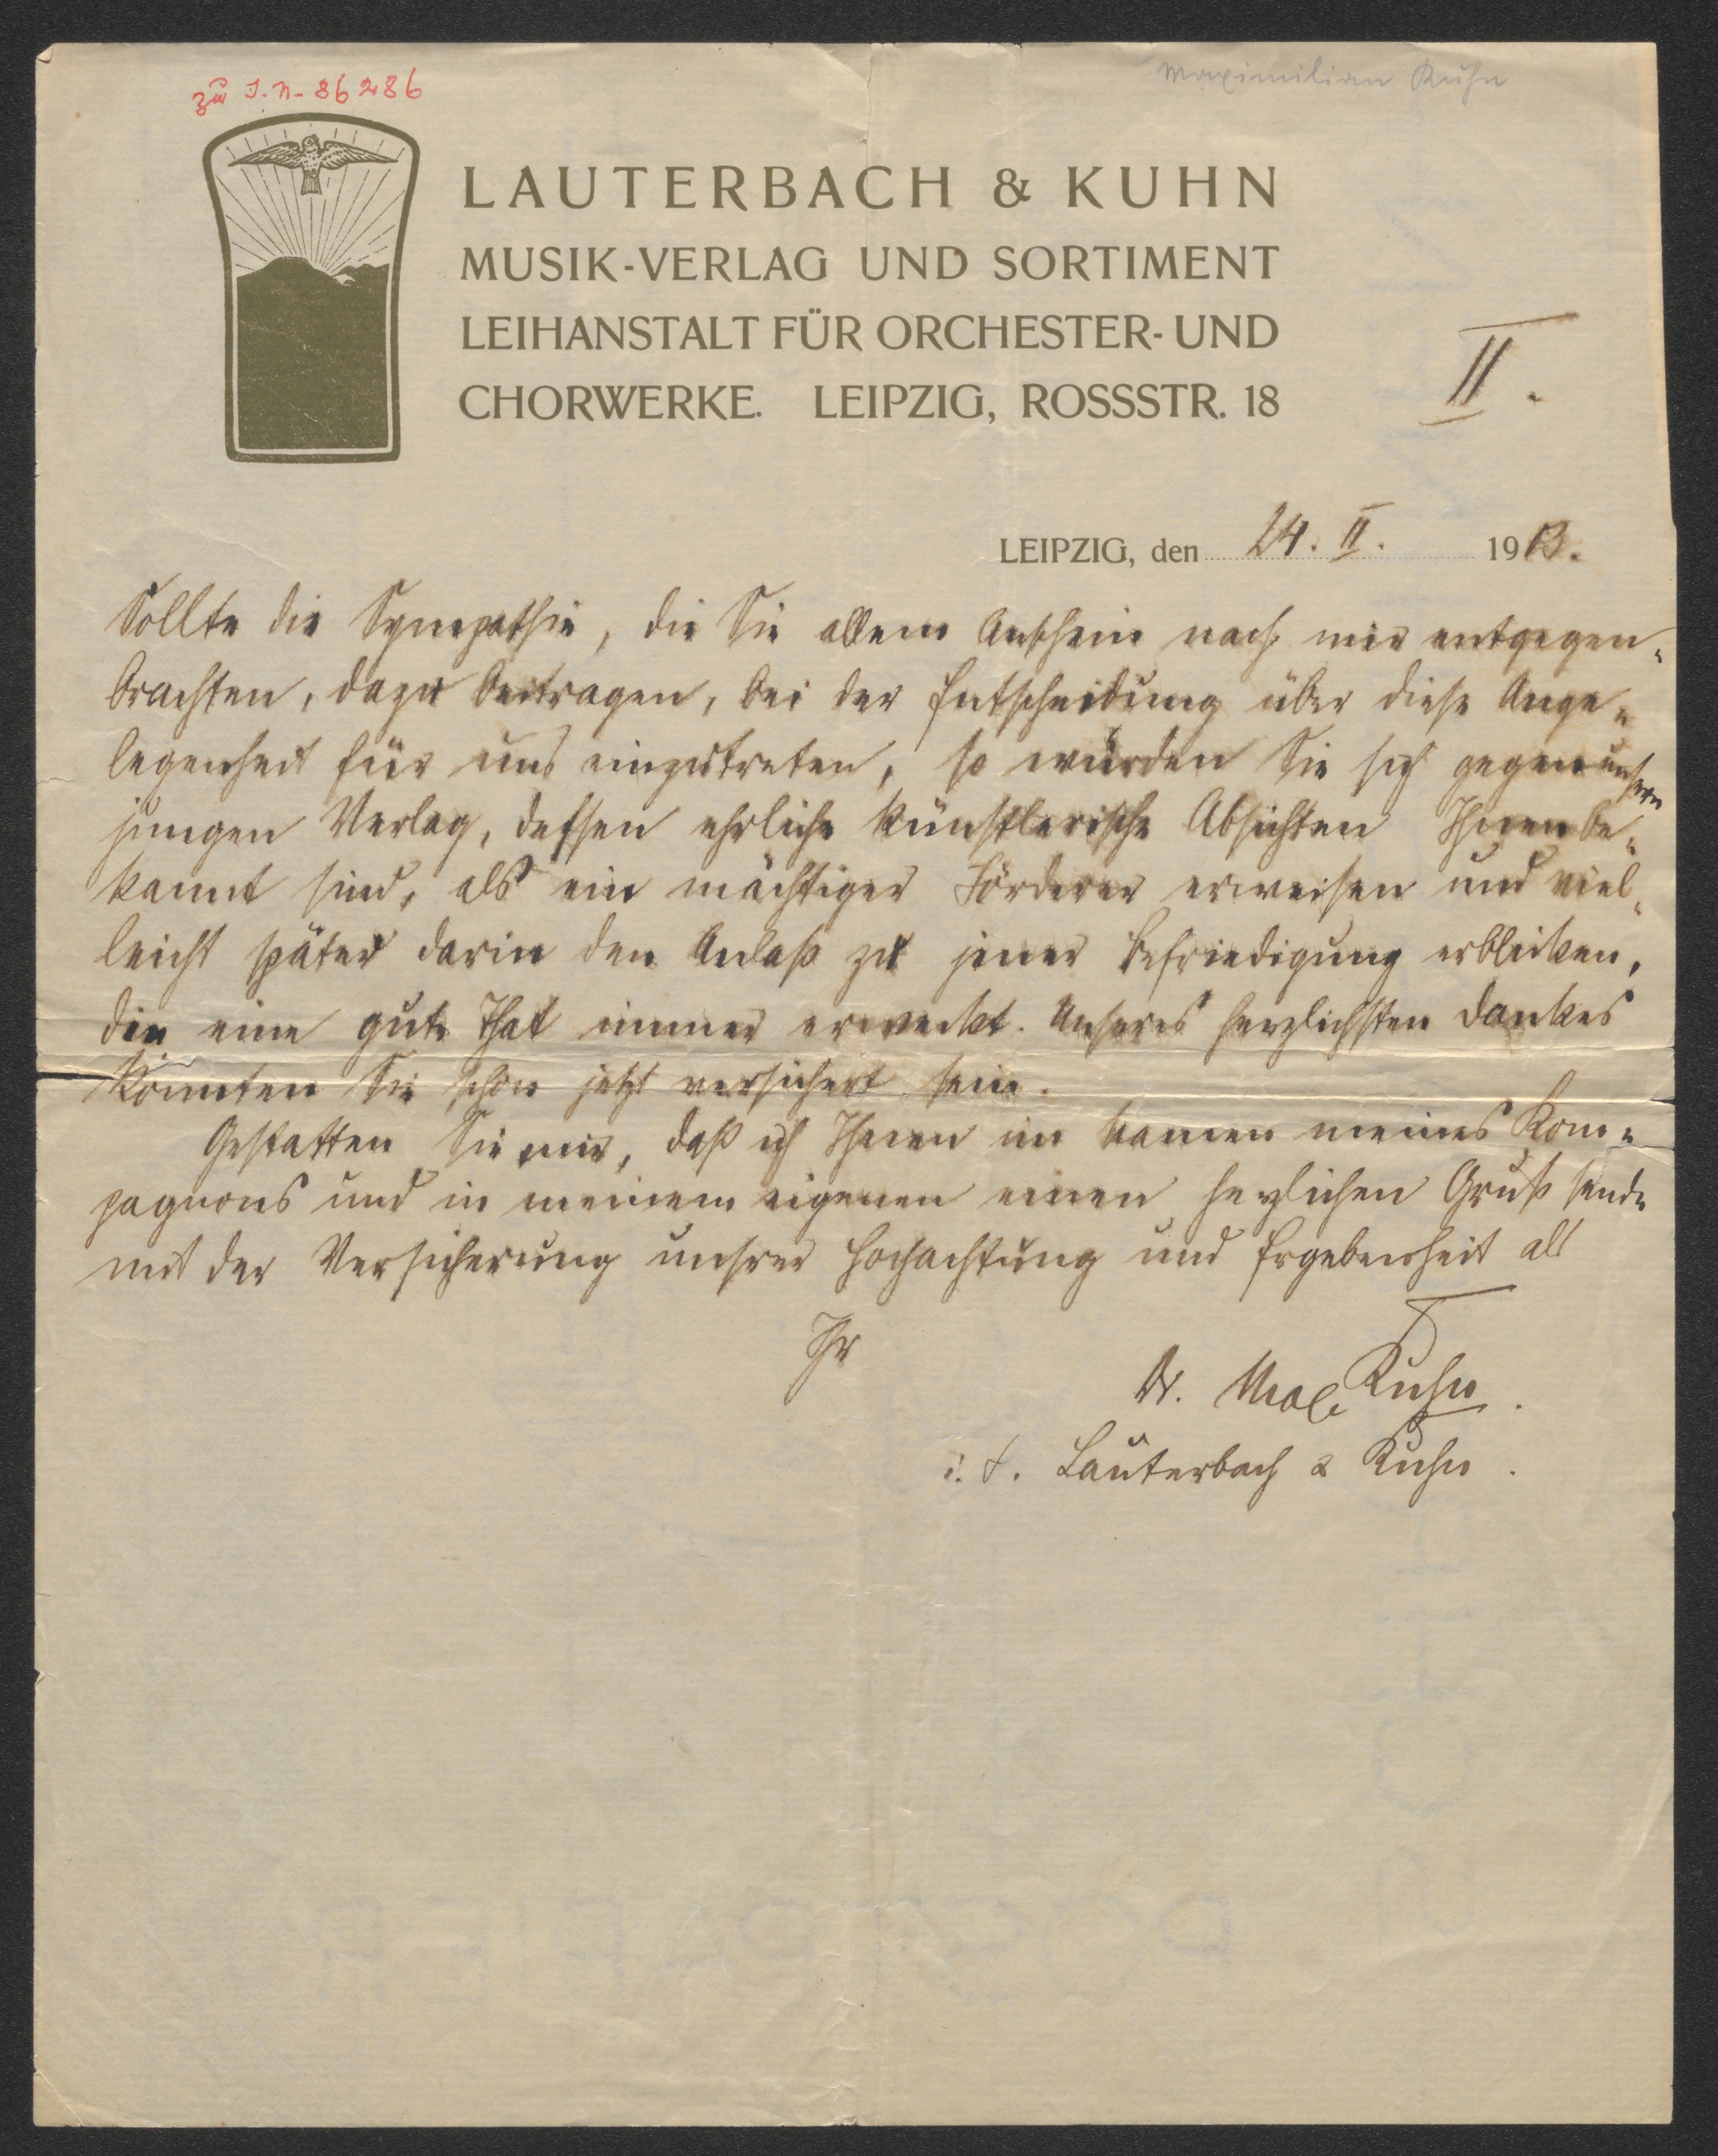 zu I.N. 86286
Maximilian Kuhn
LAUTERBACH & KUHN
MUSIK-VERLAG UND SORTIMENT
LEIHANSTALT FÜR ORCHESTER- UND
CHORWERKE. LEIPZIG, ROSSSTR. 18
II.
LEIPZIG, den 24. II. 1903.
Sollte die Sympathie, die Sie allem Anschein nach mir entgegen-
brachten, dazu beitragen, bei der Entscheidung über diese Ange-
legenheit für uns einzutreten, so würden Sie sich gegen unsern
jungen Verlag, dessen ehrliche künstlerische Absichten Ihnen be-
kannt sind, als ein mächtiger Förderer erweisen und viel-
leicht später darin den Anlaß zu jener Befriedigung erblicken,
die eine gute That immer erweckt. Unseres herzlichsten Dankes
könnten Sie schon jetzt versichert sein.
Gestatten Sie mir, daß ich Ihnen im Namen meines Kom-
pagnons und in meinem eigenen einen herzlichen Gruß sende
mit der Versicherung unsrer Hochachtung und Ergebenheit als
Ihr
Dr. Max Kuhn.
i. F. Lauterbach & Kuhn.